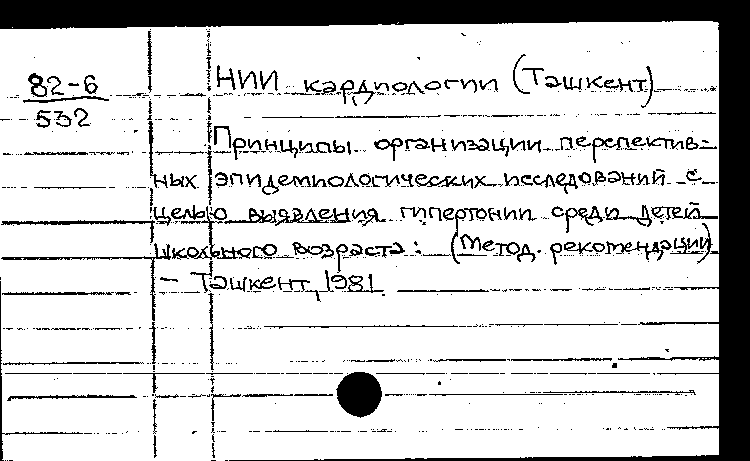 82-6
532
НИИ кардиологии (Ташкент)
Принципы организации перспектив-
ных эпидемиологических исследований с
целью выявления гипертонии среди детей
школьного возраста: (Метод. рекомендации)
- Ташкент, 1981.